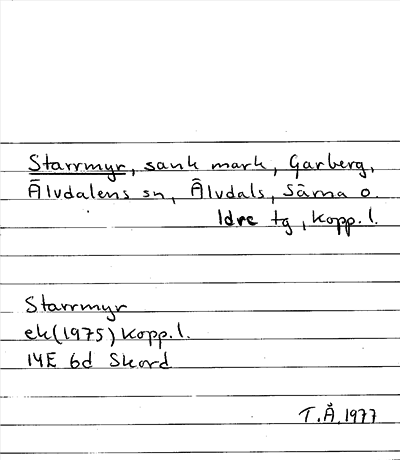 Starrmyr, sank mark, Garberg,
Älvdalens sn, Älvdals, Särna o.
Idre tg, Kopp. l.
Starrmyr
ek (1975) Kopp. l.
14E 6d Skord
T.Å. 1977